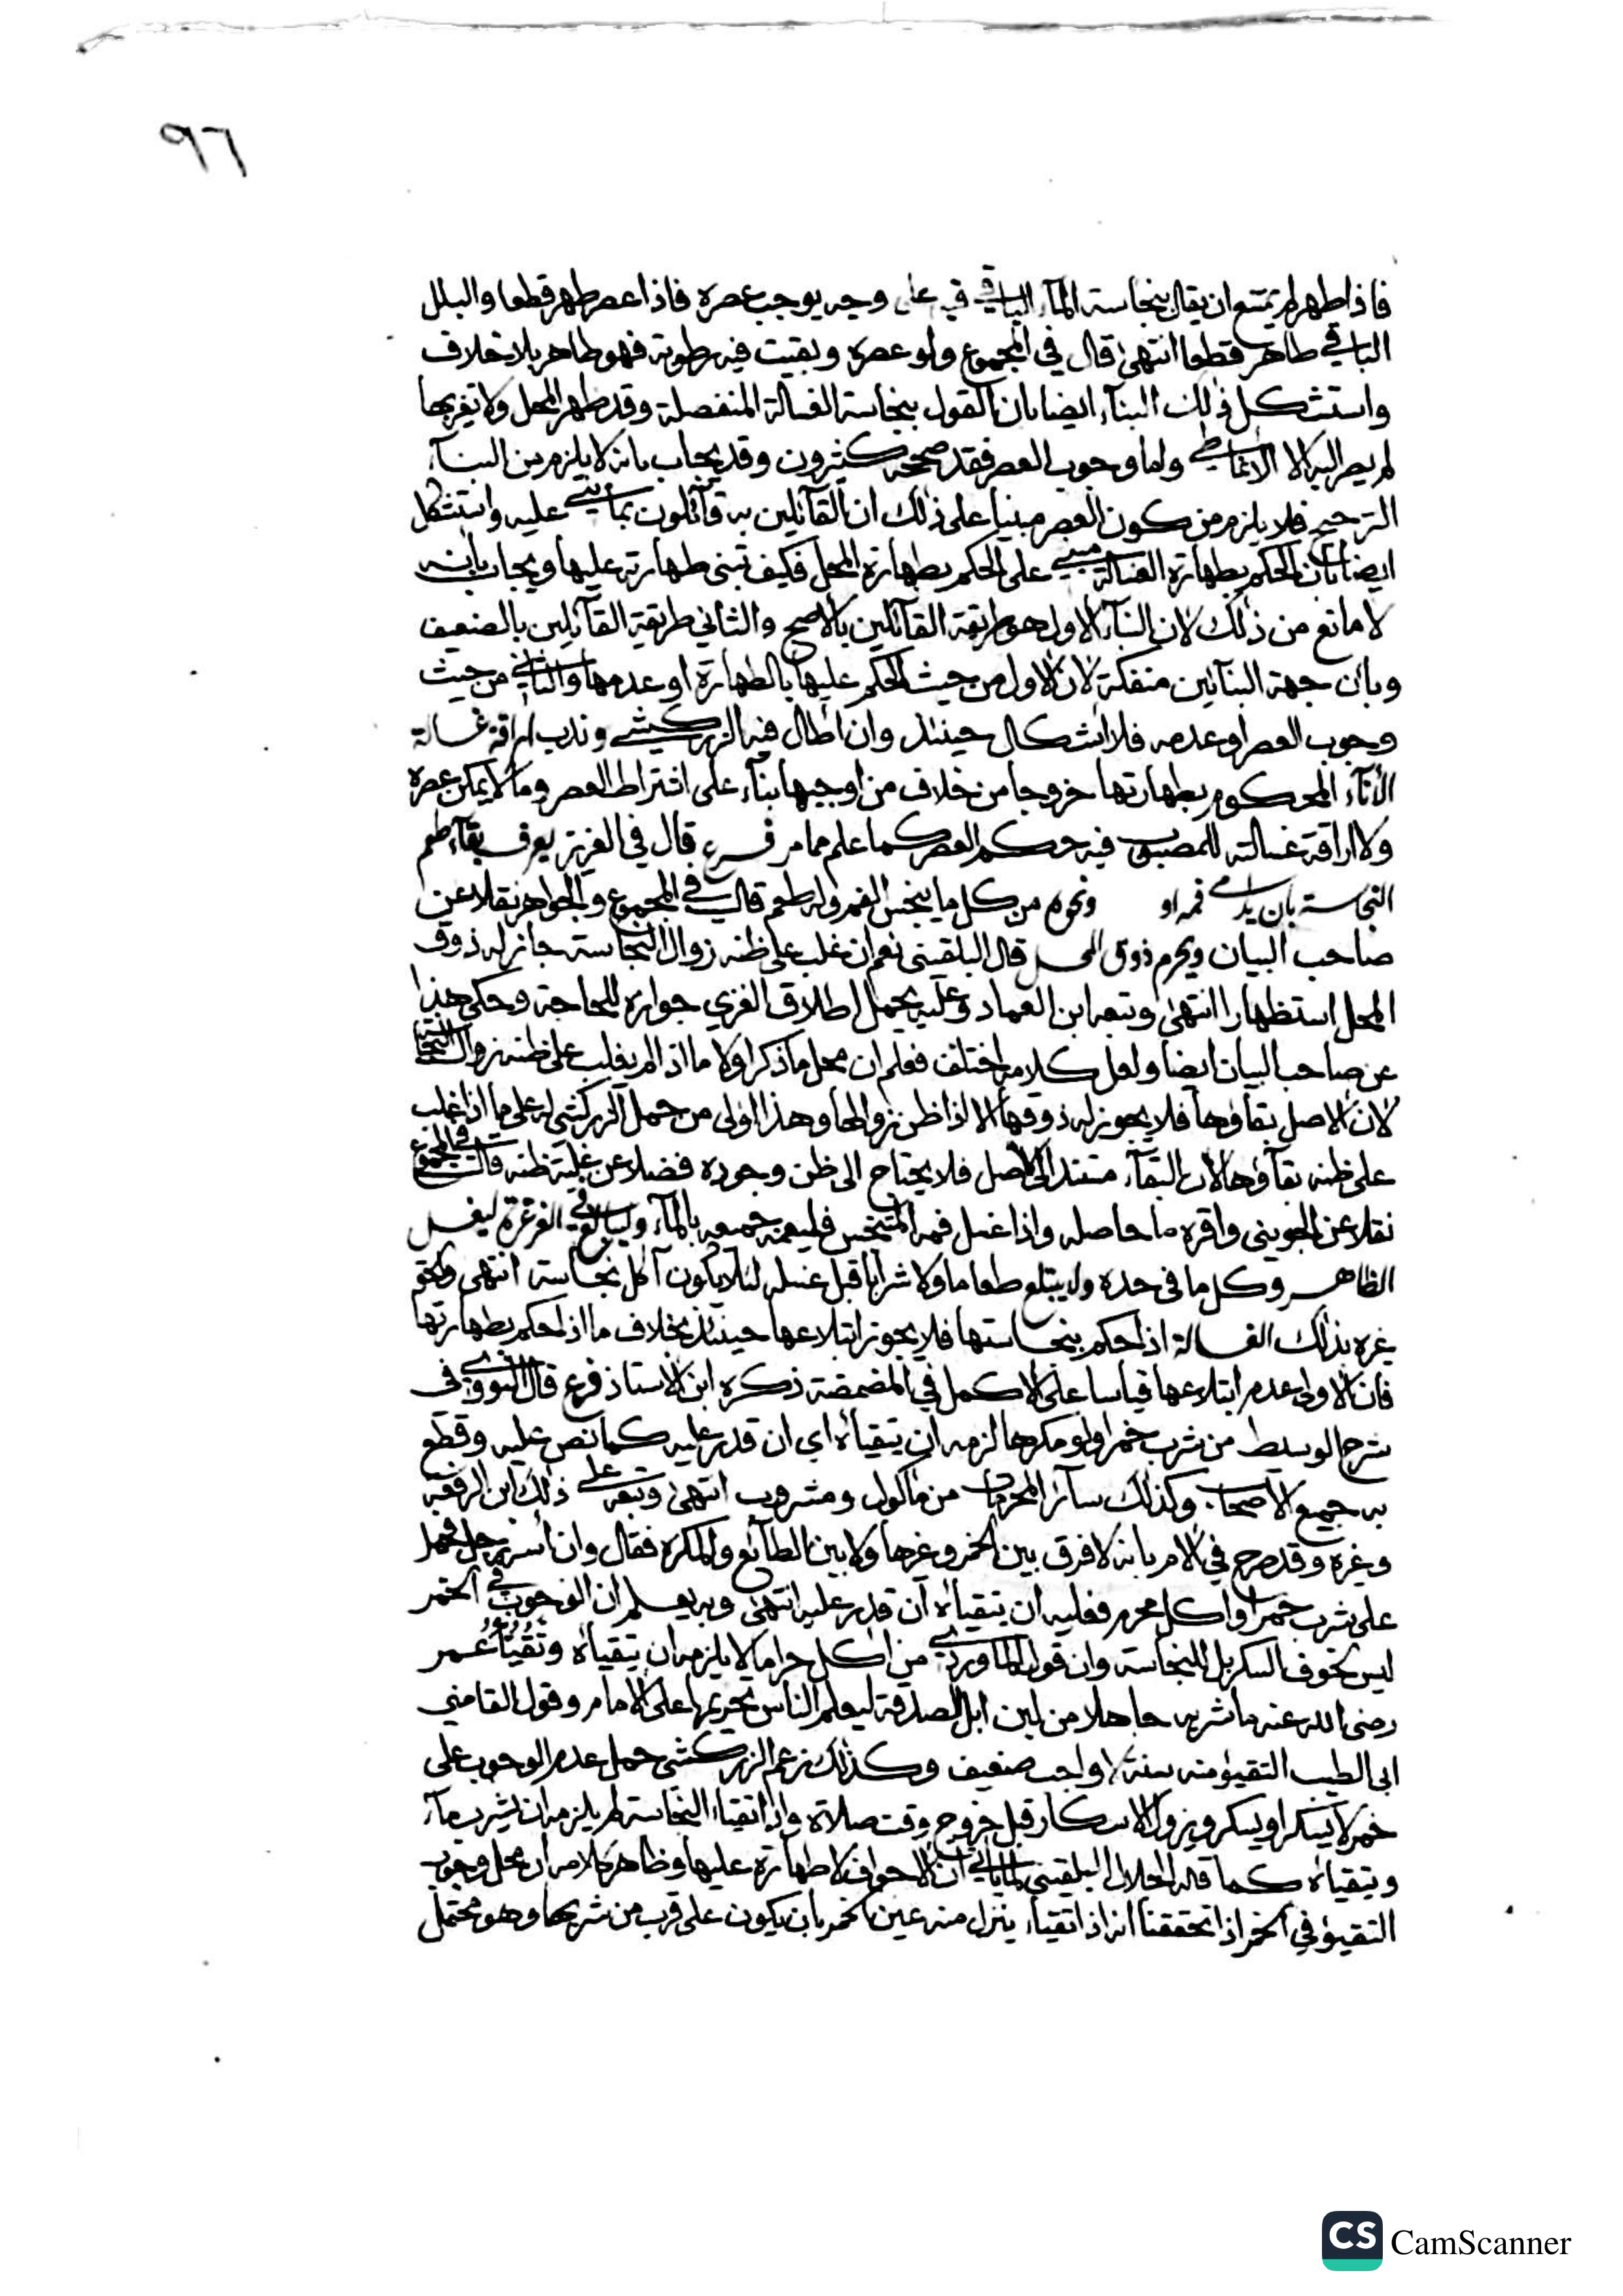 ٩٦
فاذا طهر لم يمتنع ان يقال بنجاسة المآء الباقي فيه على وجه يوجب عصره فاذا عصر طهر قطعا والبلل
الباقي طاهر قطعا انتهى قال في المجموع ولو عصره وبقيت فيه رطوبة فهو طاهر بلا خلاف
واستشكل ذلك البنآء ايضا بان القول بنجاسة الغسالة المنفصلة وقد طهر المحل ولا تغير بها
لم يصر اليه الا الانماطي واما وجوب العصر فقد صححه كثيرون وقد يجاب بانه لا يلزم من البنآء
الترجيح فلا يلزم من كون العصر مبنيا على ذلك ان القآئلين به قآئلون بما بني عليه واستشكل
ايضا بان الحكم بطهارة الغسالة مبني على الحكم بطهارة المحل فكيف تبنى طهارته عليها ويجاب بانه
لا مانع من ذلك لان البنآء الاول هو طريقة القآئلين بالاصح والثاني طريقة القآئلين بالضعيف
وبان جهة البنآئين منفكة لان الاول من حيث الحكم عليها بالطهارة او عدمها والثاني من حيث
وجوب العصر او عدمه فلا اشكال حينئذ وان اطال فيه الزركشي وندب اراقة غسالة
الانآء المحكوم بطهارتها خروجا من خلاف من اوجبها بنآء على اشتراط العصر وما لا يمكن عصره
ولا اراقة غسالته للمصبوب فيه حكم العصر كما علم مما مر فرع قال في العزيز يعرف بقآء طعم
النجاسة بان يدمي فمه او ونحوه من كل ما ينجس الفم وله طعم قال في المجموع والجواهر نقلا عن
صاحب البيان ويحرم ذوق المحل قال البلقيني نعم ان غلب على ظنه زوال النجاسة جاز له ذوق
المحل استظهارا انتهى وتبعه ابن العماد وعليه يحمل اطلاق الغزي جوازه للحاجة وحكى هذا
عن صاحب البيان ايضا ولعل كلامه اختلف فعلم ان محل ما ذكر اولا ما اذا لم يغلب على ظنه زوال النجاسة
لان الاصل بقاؤها فلا يجوز له ذوقها الا اذا ظن زوالها وهذا اولى من حمل الزركشي له على ما اذا غلب
على ظنه بقآؤها لان البقآء مستند الى الاصل فلا يحتاج الى ظن وجوده فضلا عن غلبة ظنه قال في المجموع
نقلا عن الجويني واقره ما حاصله واذا غسل فمه المتنجس فليعمه جميعه بالمآء وليبالغ في الغرغرة ليغسل
الظاهر وكل ما في حده ولا يبتلع طعاما ولا شرابا قبل غسله لئلا يكون آكل نجاسة انتهى والحق
غيره بذلك الغسالة اذا حكم بنجاستها فلا يجوز ابتلاعها حينئذ بخلاف ما اذا حكم بطهارتها
فان الاولى عدم ابتلاعها قياسا على الاكمل في المضمضة ذكره ابن الاستاذ فرع قال النووي في
شرح الوسيط من شرب خمرا ولو مكرها لزمه ان يتقيأه اي ان قدر عليه كما نص عليه وقطع
به جميع الاصحاب وكذلك سآئر المحرمات من مأكول ومشروب انتهى وتبعه على ذلك ابن الرفعة
وغيره وقد صرح في الام بانه لا فرق بين الخمر وغيرها ولا بين الطآئع والمكره فقال وان أسر رجل فحمل
على شرب خمر او اكل محرم فعليه ان يتقيأه ان قدر عليه انتهى وبه يعلم ان الوجوب في الخمر
ليس لخوف السكر بل للنجاسة وان قول الماوردي من اكل حراما لا يلزمه ان يتقيأه وتقيؤ عمر
رضى الله عنه ما شربه جاهلا من لبن ابل الصدقة ليعلم الناس تحريمها على الامام وقول القاضي
ابى الطيب التقيؤ منه سنة لا واجب ضعيف وكذلك زعم الزركشي حمل عدم الوجوب على
خمر لا يسكر او يسكر ويزول الاسكار قبل خروج وقت صلاة واذا تقيأ النجاسة لم يلزمه ان يشرب مآء
ويتقيأه كما قاله الجلال البلقيني لما يأتي ان الاجواف لا طهارة عليها وظاهر كلامه ان محل وجوب
التقيؤ في الخمر اذا تحققنا انه اذا تقيأ ينزل منه عين الخمر بان يكون على قرب من شربها وهو محتمل
CS CamScanner